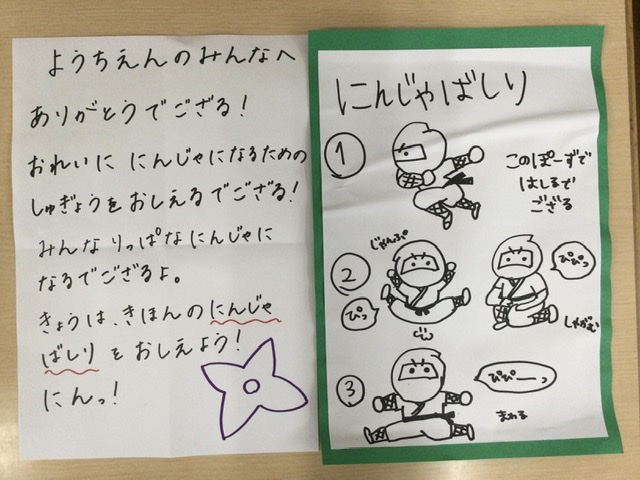 ようちえんのみんなへ
ありがとうでござる!
おれいに にんじゃになるための
しゅぎょうをおしえるでござる!
みんなりっぱなにんじゃに
なるでござるよ。
きょうは、きほんのにんじゃ
ばしりをおしえよう!
にんっ!
にんじゃばしり
1
このぽーずで
はしるで
ござる
2
じゃんぷ
ぴっ
ぴぴっ
しゃがむ
3
ぴぴーっ
まわる